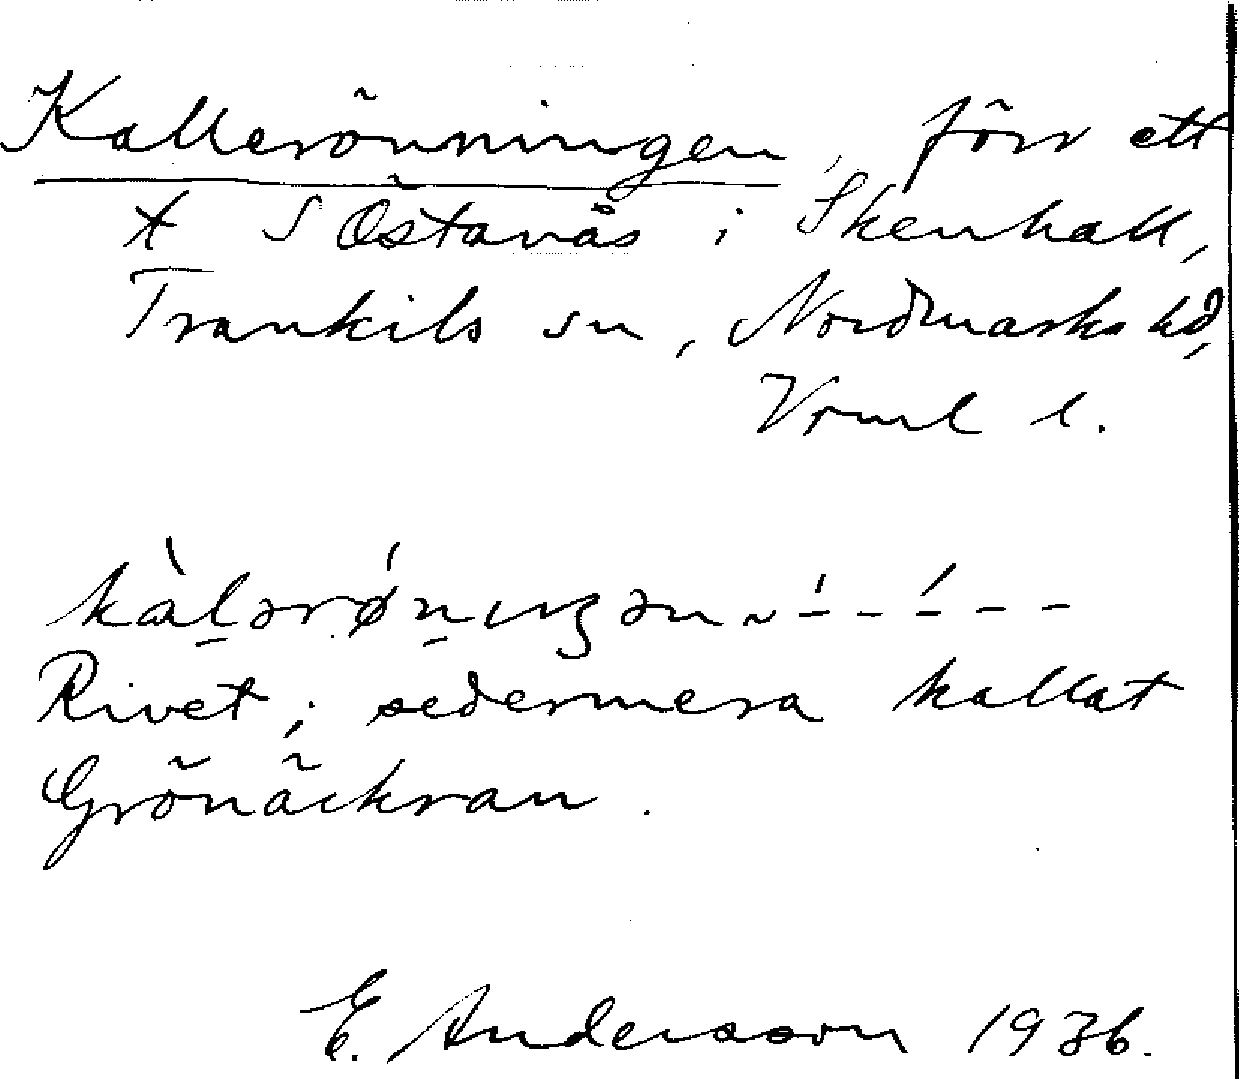 Kallerönningen, förr ett
t S Östanås i Skenhall,
Trankils sn, Nordmarks hd,
Vrml l.
kàl̠ərǿn̠ıŋən ~ ´- - ´- - -
Rivet; sedermera kallat
Grönäckran.
E. Andersson 1936.